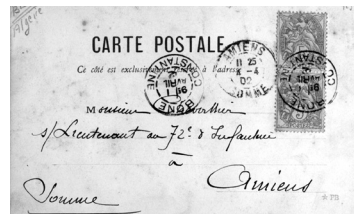 Algérie
CARTE POSTALE
Ce côté est exclusivement réservé à l'adresse
AMIENS
11 25
4
02
SOMME
BONE
CONSTANTINE
16
AVRIL
BONE
CONSTANTINE
16
AVRIL
Monsieur
s/Lieutenant au 72e d'Infanterie
à
Amiens
Somme